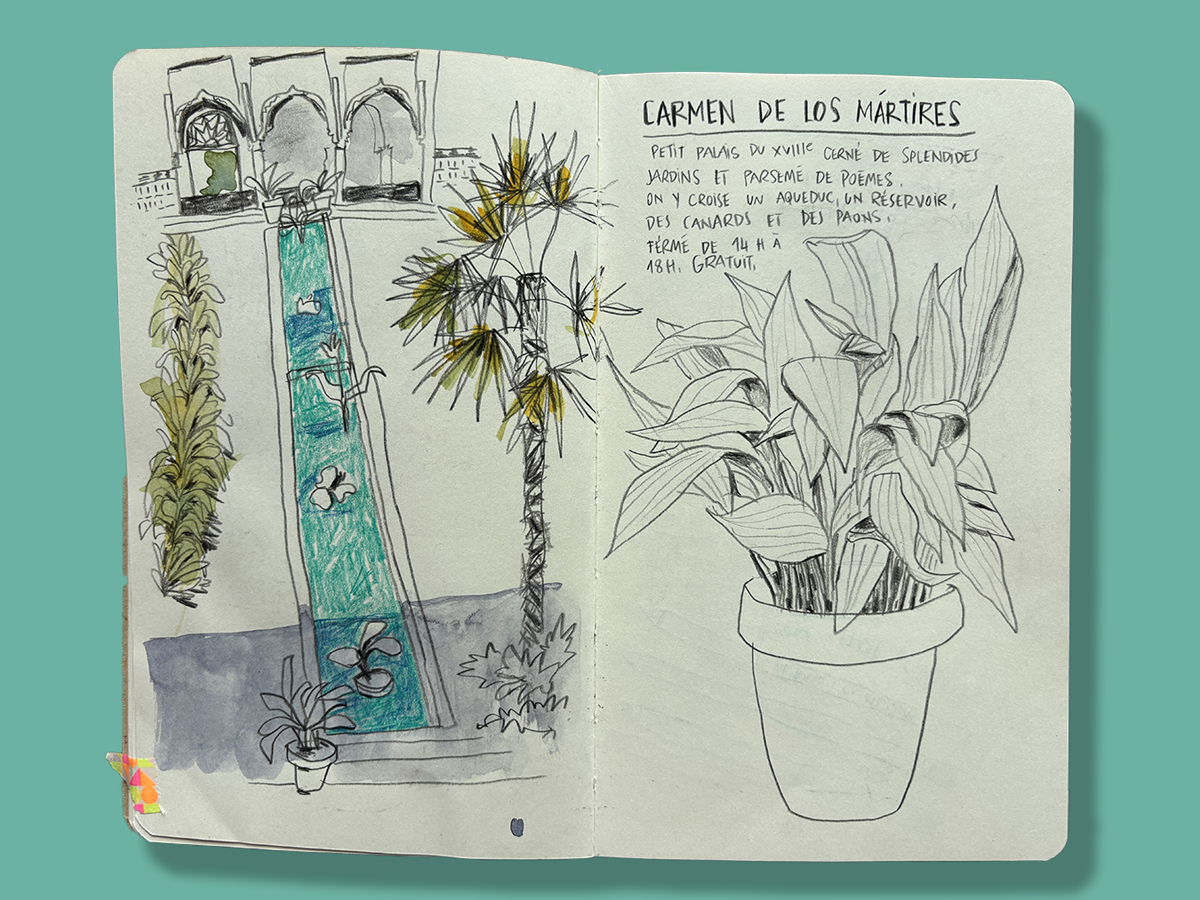 CARMEN DE LOS MÁRTIRES
PETIT PALAIS DU XVIIIe CERNÉ DE SPLENDIDES
JARDINS ET PARSEMÉ DE POÈMES.
ON Y CROISE UN AQUEDUC, UN RÉSERVOIR,
DES CANARDS ET DES PAONS.
FERMÉ DE 14 H À
18H. GRATUIT.